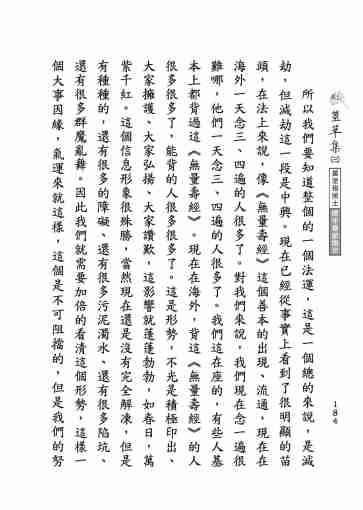 薑草集(二)
184
所以我們要知道整個的一個法運，這是一個總的來說，是減
劫，但減劫這一段是中興。現在已經從事實上看到了很明顯的苗
頭，在法上來說，像《無量壽經》這個善本的出現、流通，現在在
海外一天念三、四遍的人很多了。對我們來說，我們現在念一遍很
難哪，他們一天念三、四遍的人很多了。我們這在座的，有些人基
本上都背過這《無量壽經》。現在在海外，背這《無量壽經》的人
很多很多了，能背的人很多很多了。這是形勢，不光是積極印出、
大家擁護、大家弘揚、大家讚歎，這影響就蓬蓬勃勃，如春日，萬
紫千紅。這個信息形象很殊勝，當然現在還是沒有完全解凍，但是
有種種的，還有很多的障礙、還有很多污泥濁水、還有很多陷坑、
還有很多群魔亂舞。因此我們就需要加倍的看清這個形勢，這樣一
個大事因緣，氣運來就這樣，這個是不可阻擋的，但是我們的努